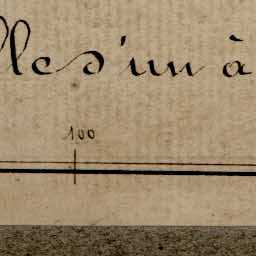 lle d'un à
100